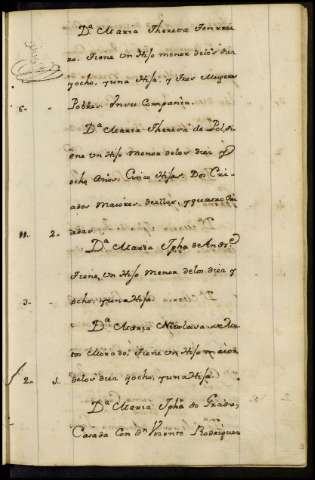 Dª Maria Theresa Ferrei
ra. Tiene Un Hijo menor delos diez
yocho, y una Hija, y tres Mugeres
6- Pobres. En su Compania.
Dª Maria Theresa de
ene Un Hijo Menor delos diez y
ocho Años, Cinco Hijas. Dos Cri
ados Maiores de ellos, y quatro Cri
11. 2. adas.
Dª Maria Jpha de Andrᵉ
Tiene, Un Hijo Menor delos diez y
3. ocho, y una Hija.
Dª Maria Nicolasa
Tiene Un Hijo maior
2. 1. delos diez yocho, y una Hija
Dª Maria Jpha de Prado,
Casada Con dⁿ Vicente Rodriguez